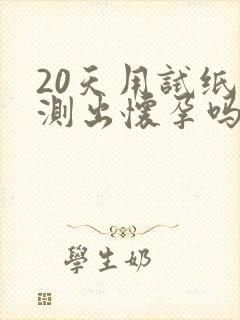 20天用試纸
測出懷孕吗
學生奶